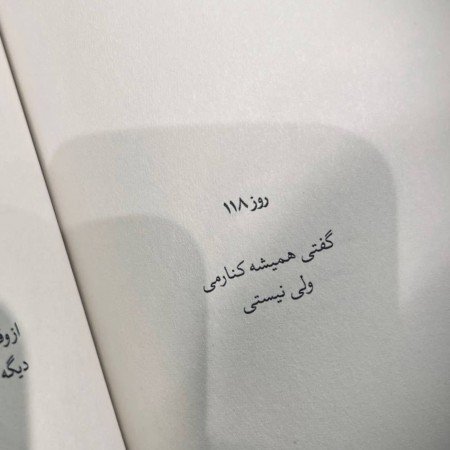 روز ۱۱۸
گفتی همیشه کنارمی
ولی نیستی
دیگه